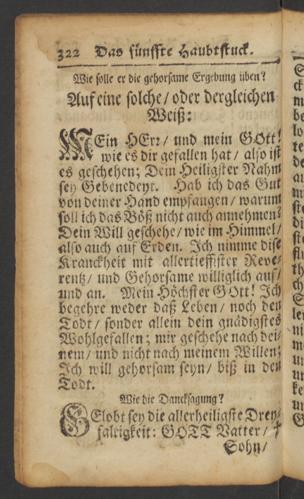 322 Das fünffte Haubtstuck.
Wie solle er die gehorsame Ergebung üben?
Auf eine solche / oder dergleichen
Weiß:
MEin HErr / und mein GOtt!
wie es dir gefallen hat / also ist
es geschehen; Dein Heiligster Nahm
sey Gebenedeyt. Hab ich das Gut
von deiner Hand empfangen / warum
soll ich das Böß nicht auch annehmen?
Dein Will geschehe / wie im Himmel /
also auch auf Erden. Ich nimme dise
Kranckheit mit allertieffister Reve-
rentz / und Gehorsame williglich auf /
und an. Mein Höchster GOtt! Ich
begehre weder daß Leben / noch den
Todt / sonder allein dein gnädigstes
Wohlgefallen; mir geschehe nach dei-
nem / und nicht nach meinem Willen;
Ich will gehorsam seyn / biß in den
Todt.
Wie die Dancksagung?
GElobt sey die allerheiligste Drey-
faltigkeit: GOTT Vatter / †
Sohn /